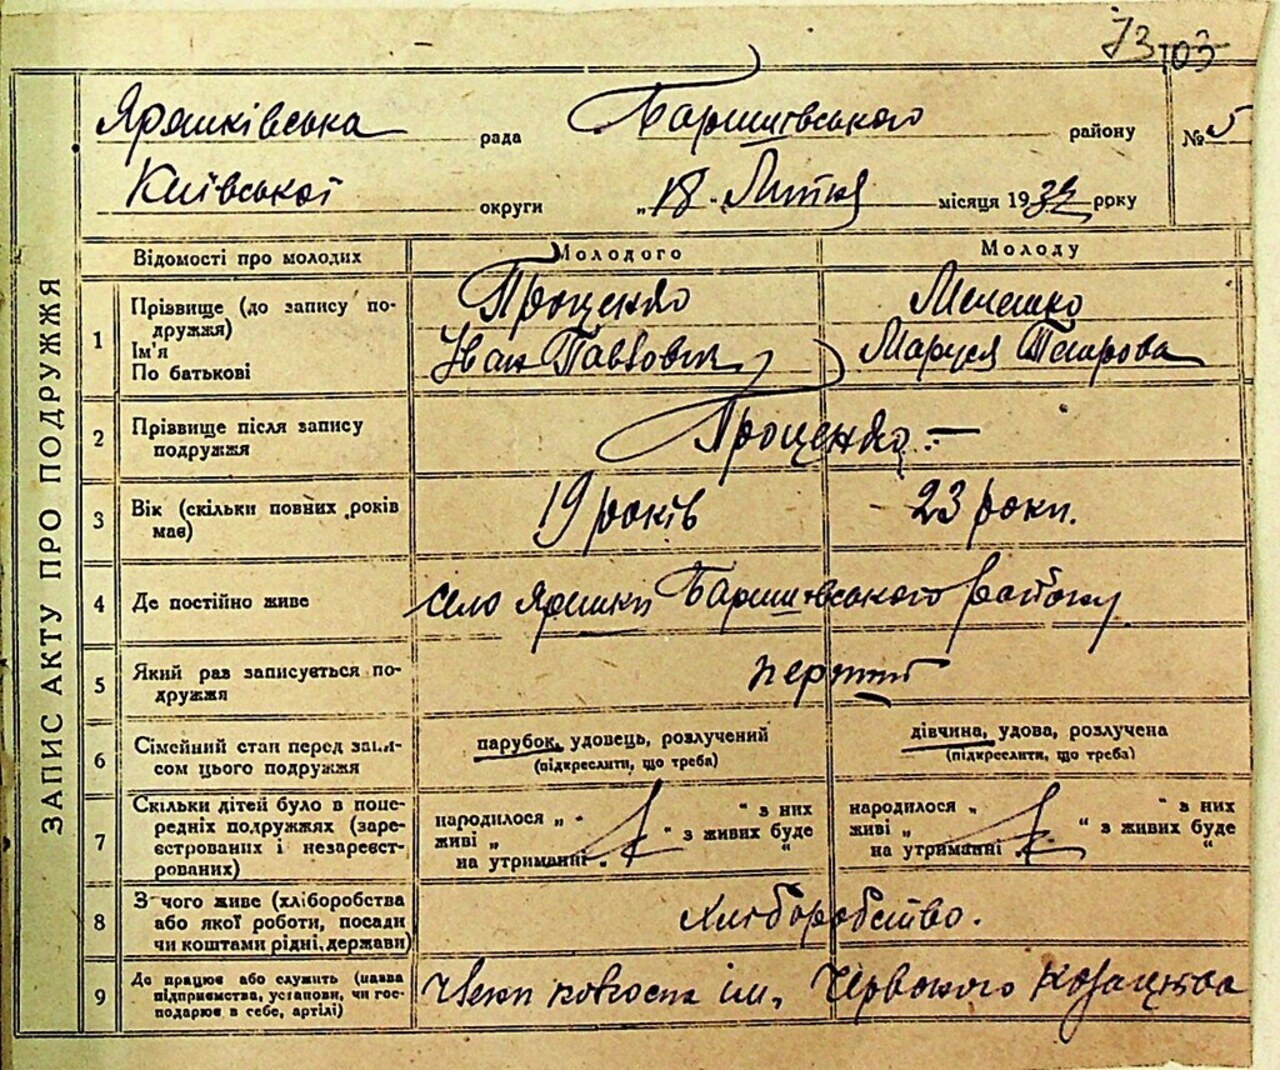 73 103
Ярешківська рада Баришівського району № 5
Київської округи „ 18 . Лютня місяця 1932 року
ЗАПИС АКТУ ПРО ПОДРУЖЖЯ
Відомості про молодих
Молодого
Молоду
1
Прізвище (до запису по-
дружжя)
Ім'я
По батькові
Проценко
Іван Павлович
Мелешко
Маруся Петрова
2
Прізвище після запису
подружжя
Проценко. —
3
Вік (скільки повних років
має)
19 років
23 роки.
4
Де постійно живе
село Ярешки Баришівського району.
5
Який раз записується по-
дружжя
перший
6
Сімейний стан перед запи-
сом цього подружжя
парубок, удовець, розлучений
(підкреслити, що треба)
дівчина, удова, розлучена
(підкреслити, що треба)
7
Скільки дітей було в попе-
редніх подружжях (заре-
єстрованих і незареєст-
рованих)
народилося „ “ з них
живі „ “ з живих буде
на утриманні „ “
народилося „ “ з них
живі „ “ з живих буде
на утриманні „ “
8
З чого живе (хліборобства
або якої роботи, посади
чи коштами рідні, держави)
Хліборобство.
9
Де працює або служить (назва
підприємства, установи, чи гос-
подарює в себе, артілі)
Член колгоспа ім, Червоного козацтва